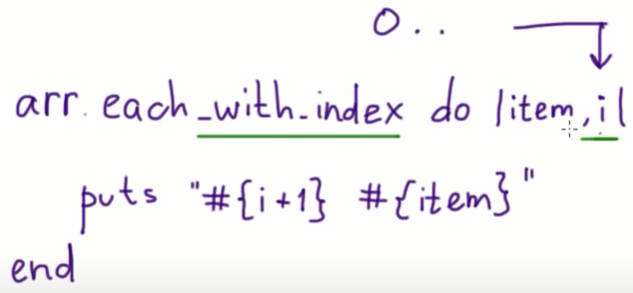 0..
arr.each_with_index do |item,i|
puts "#{i+1} #{item}"
end